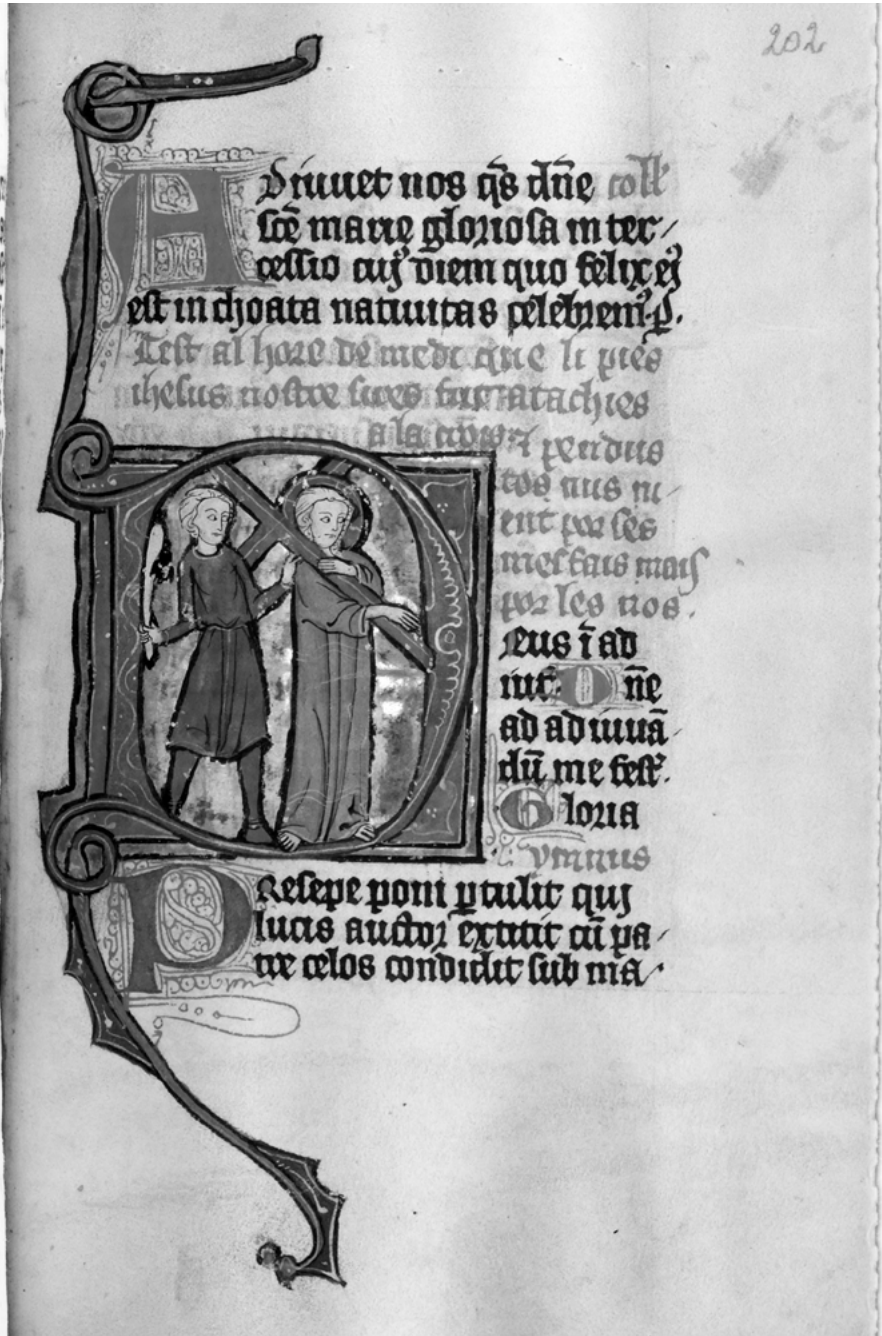 202
Adiuuet nos q̄s dn̄e coll'
sc̄e marie gloriosa inter/
cessio cuiꝰ diem quo felix eiꝰ
est inchoata natiuitas celebremꝰ. ꝑ.
Cest al hore de medi que li pies
ihesus nostre sires fut atachies
a la crois ⁊ pendus
ent por ses
mesfais mais
por les nos.
Deus ī ad
iut. Dn̄e
ad adiuuā
dū me fest'.
Gloria
ymnus
Presepe poni ꝑtulit qui
lucis auctor extitit cū pa/
tre celos condidit sub ma/